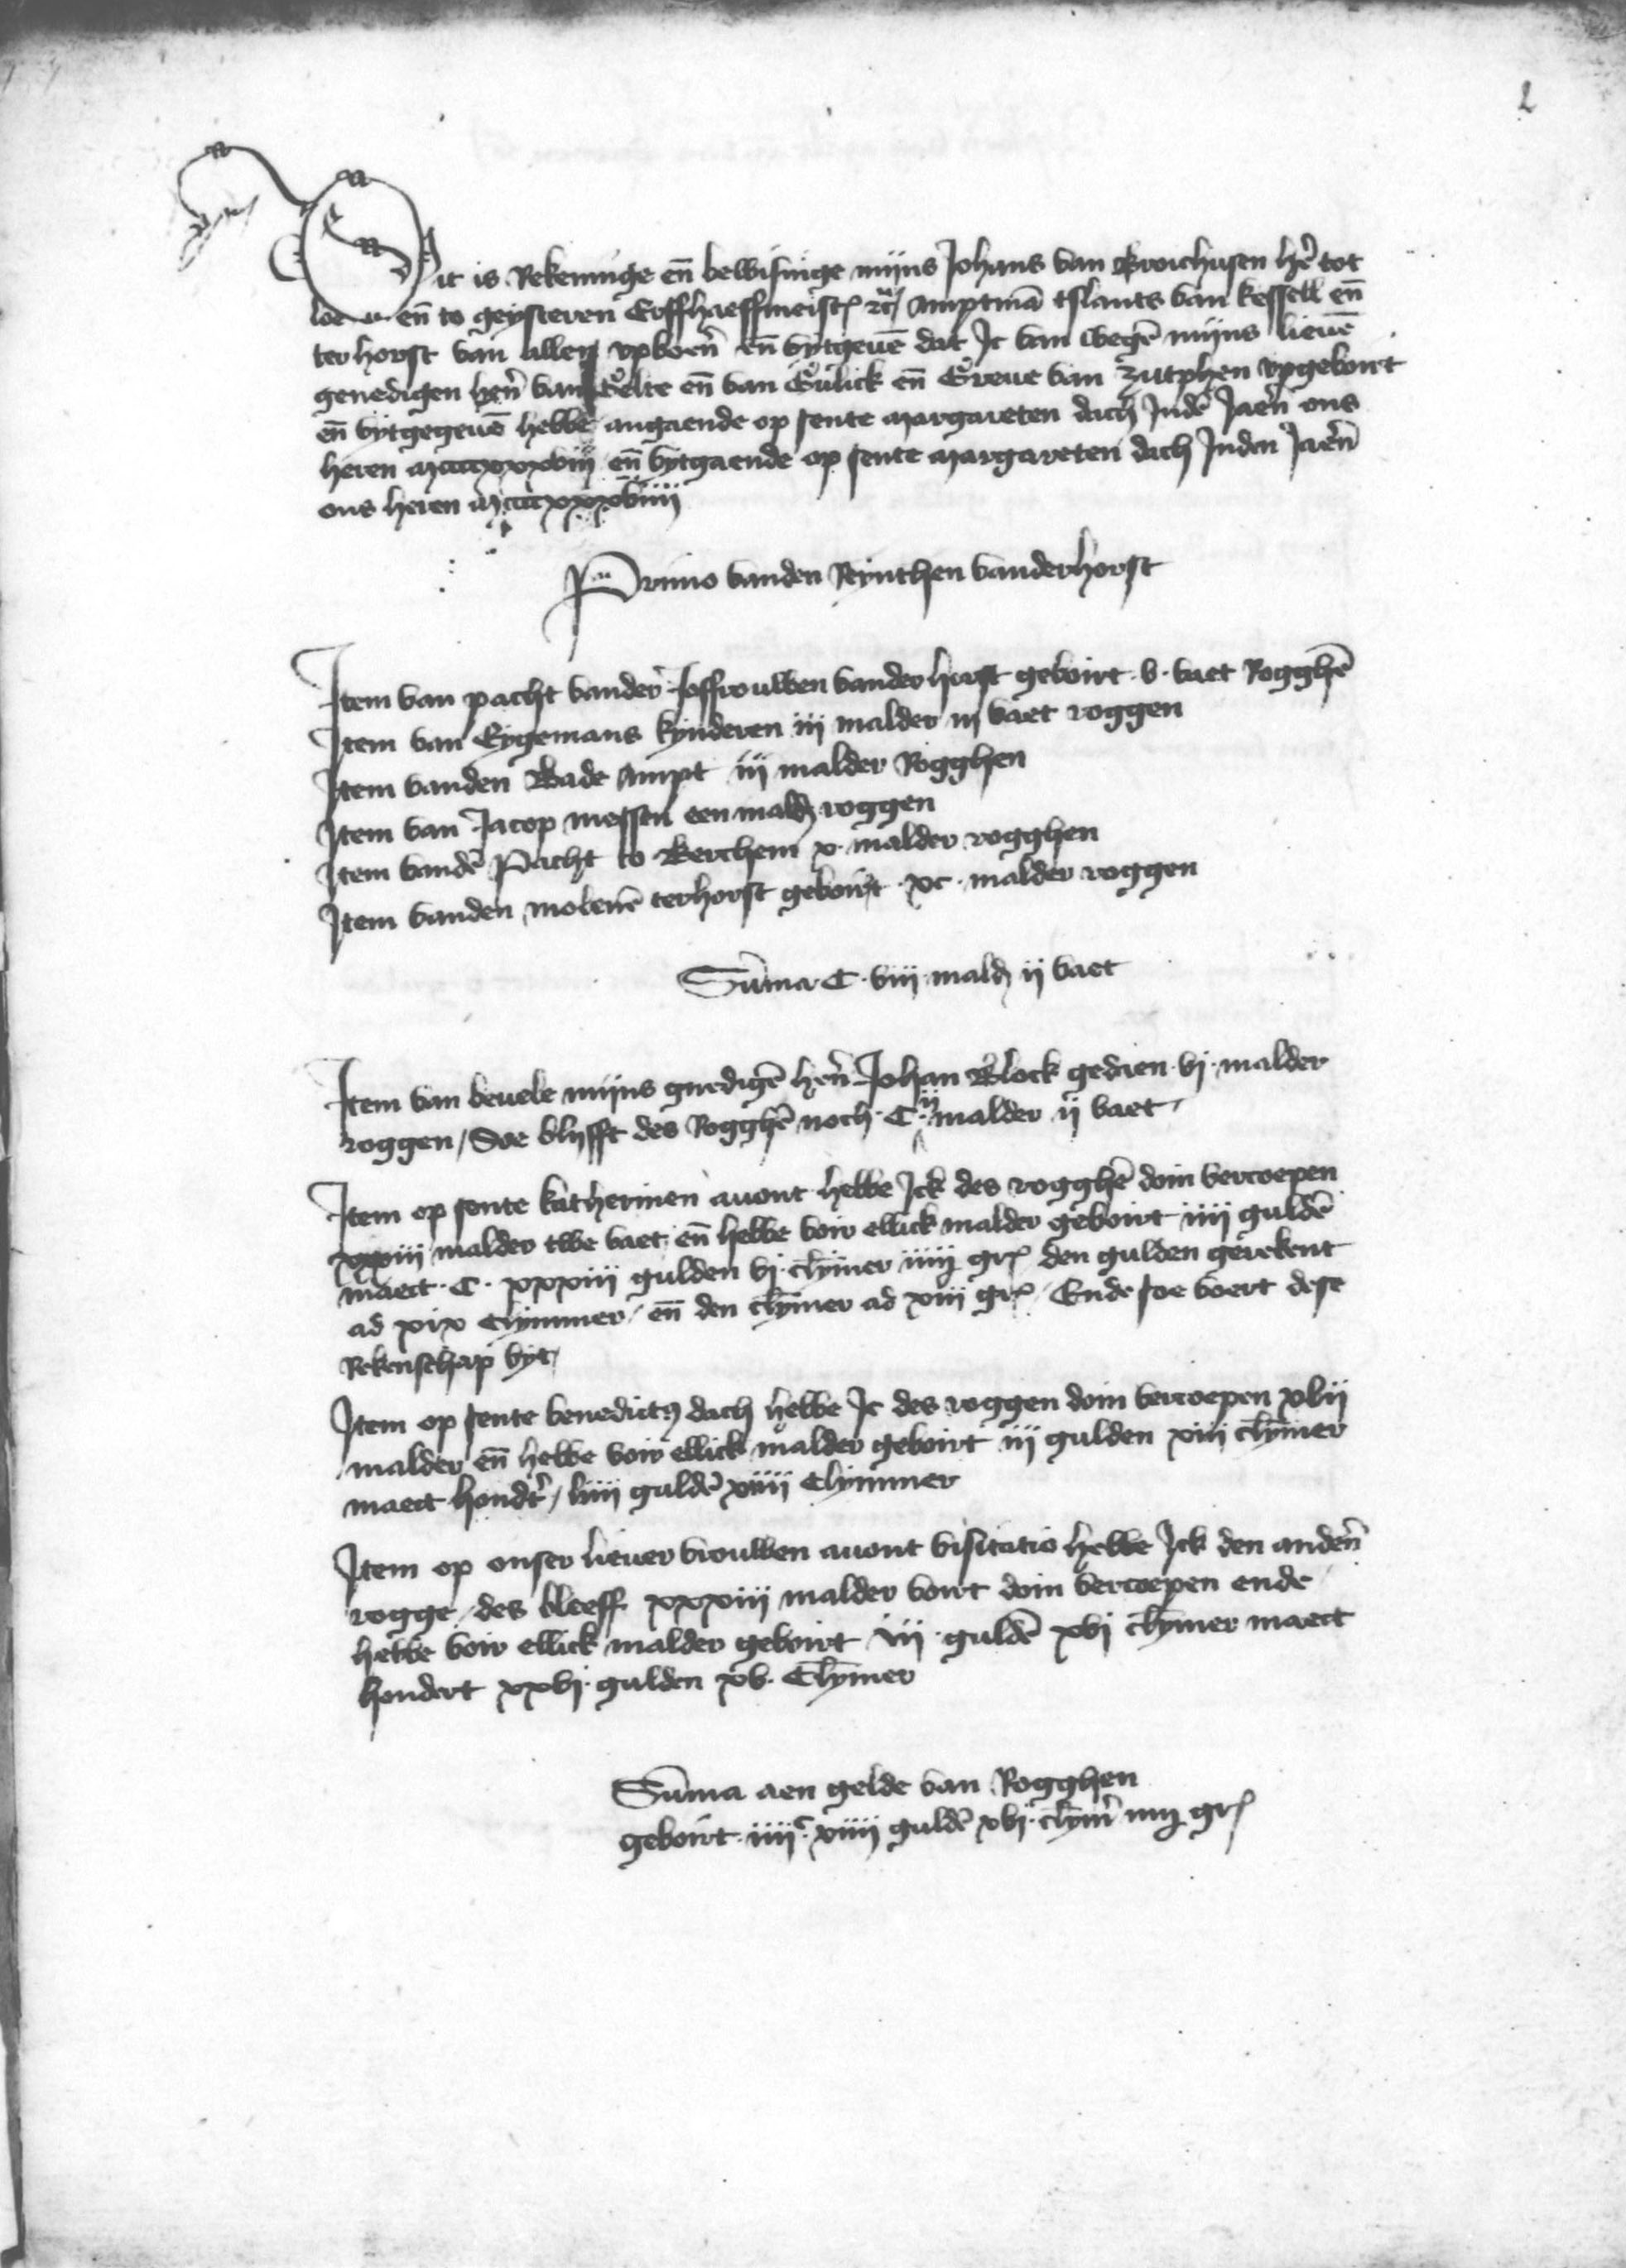 2
Dit is Rekennige en̄ bewisinge mijns Johans van Broichusen he͂r tot
loe en̄ to geysteren Erffhaeffmeist͂ ꝛc͂ Amptmā tslants van kessell en̄
ter horst van allen vpboer̄n en̄ vytgeuē dat Jc van wegē mijns lieuē
genedigen her̄n van Gelre en̄ van Gulick en̄ Greue van Zutphen vpgeboirt
en̄ vytgegeuē hebbe angaende op sente margareten dach Jndē Jaer̄n ons
heren mccccxxxviij en̄ vytgaende op sente margareten dach Jnden Jaer̄n
ons heren mccccxxxviiij
Primo vanden Reynthen vanderhorst
Jtem van pacht vander Joffrouwen vander horst geboirt v vaet Rogghē
Jtem van Eygemans kynderen iij malder iij vaet roggen
Jtem vanden Bade Ampt iij malder Rogghen
Jtem van Jacop messen een mald͂ roggen
Jtem vandē Pacht to Berchem x malder rogghen
Jtem vanden molenē terhorst geboirt xc malder roggen
Su͂ma C viij mald͂ ij vaet
Jtem van beuele mijns gnedigē her̄n Johan Block gedaen vj malder
roggen / Soe blyfft des Rogghē noch C ij malder ij vaet
Jtem op sente katherinen auont hebbe Jck des rogghē doin vercoepen
xxiij malder twe vaet en̄ hebbe voir ellick malder geboirt iiij guldē
maect C xxxiij gulden vj clym̄er iiij gr͂ den gulden gerekent
ad xix Clymmer / en̄ den clym̄er ad xiij gr͂ / Ende soe voert dese
Rekenschap vyt /
Jtem op sente benedictꝰ dach hebbe Jc des roggen doin vercoepen xlvij
malder en̄ hebbe voir ellick malder geboirt iij gulden xiij clym̄er
maect hondt͂ / liiij guldē xiiij Clymmer
Jtem op onser lieuer vrouwen auont visitatio hebbe Jck den ander̄n
rogge / des bleeff xxxiij malder voirt doin vercoepen ende
hebbe voir ellick malder geboirt iij guldē xvj clym̄er maect
hondert xxvj gulden xv Clym̄er
Su͂ma aen gelde van Rogghen
geboirt iiijᶜ xiiij guldē xvj clym̄ iiij gr͂